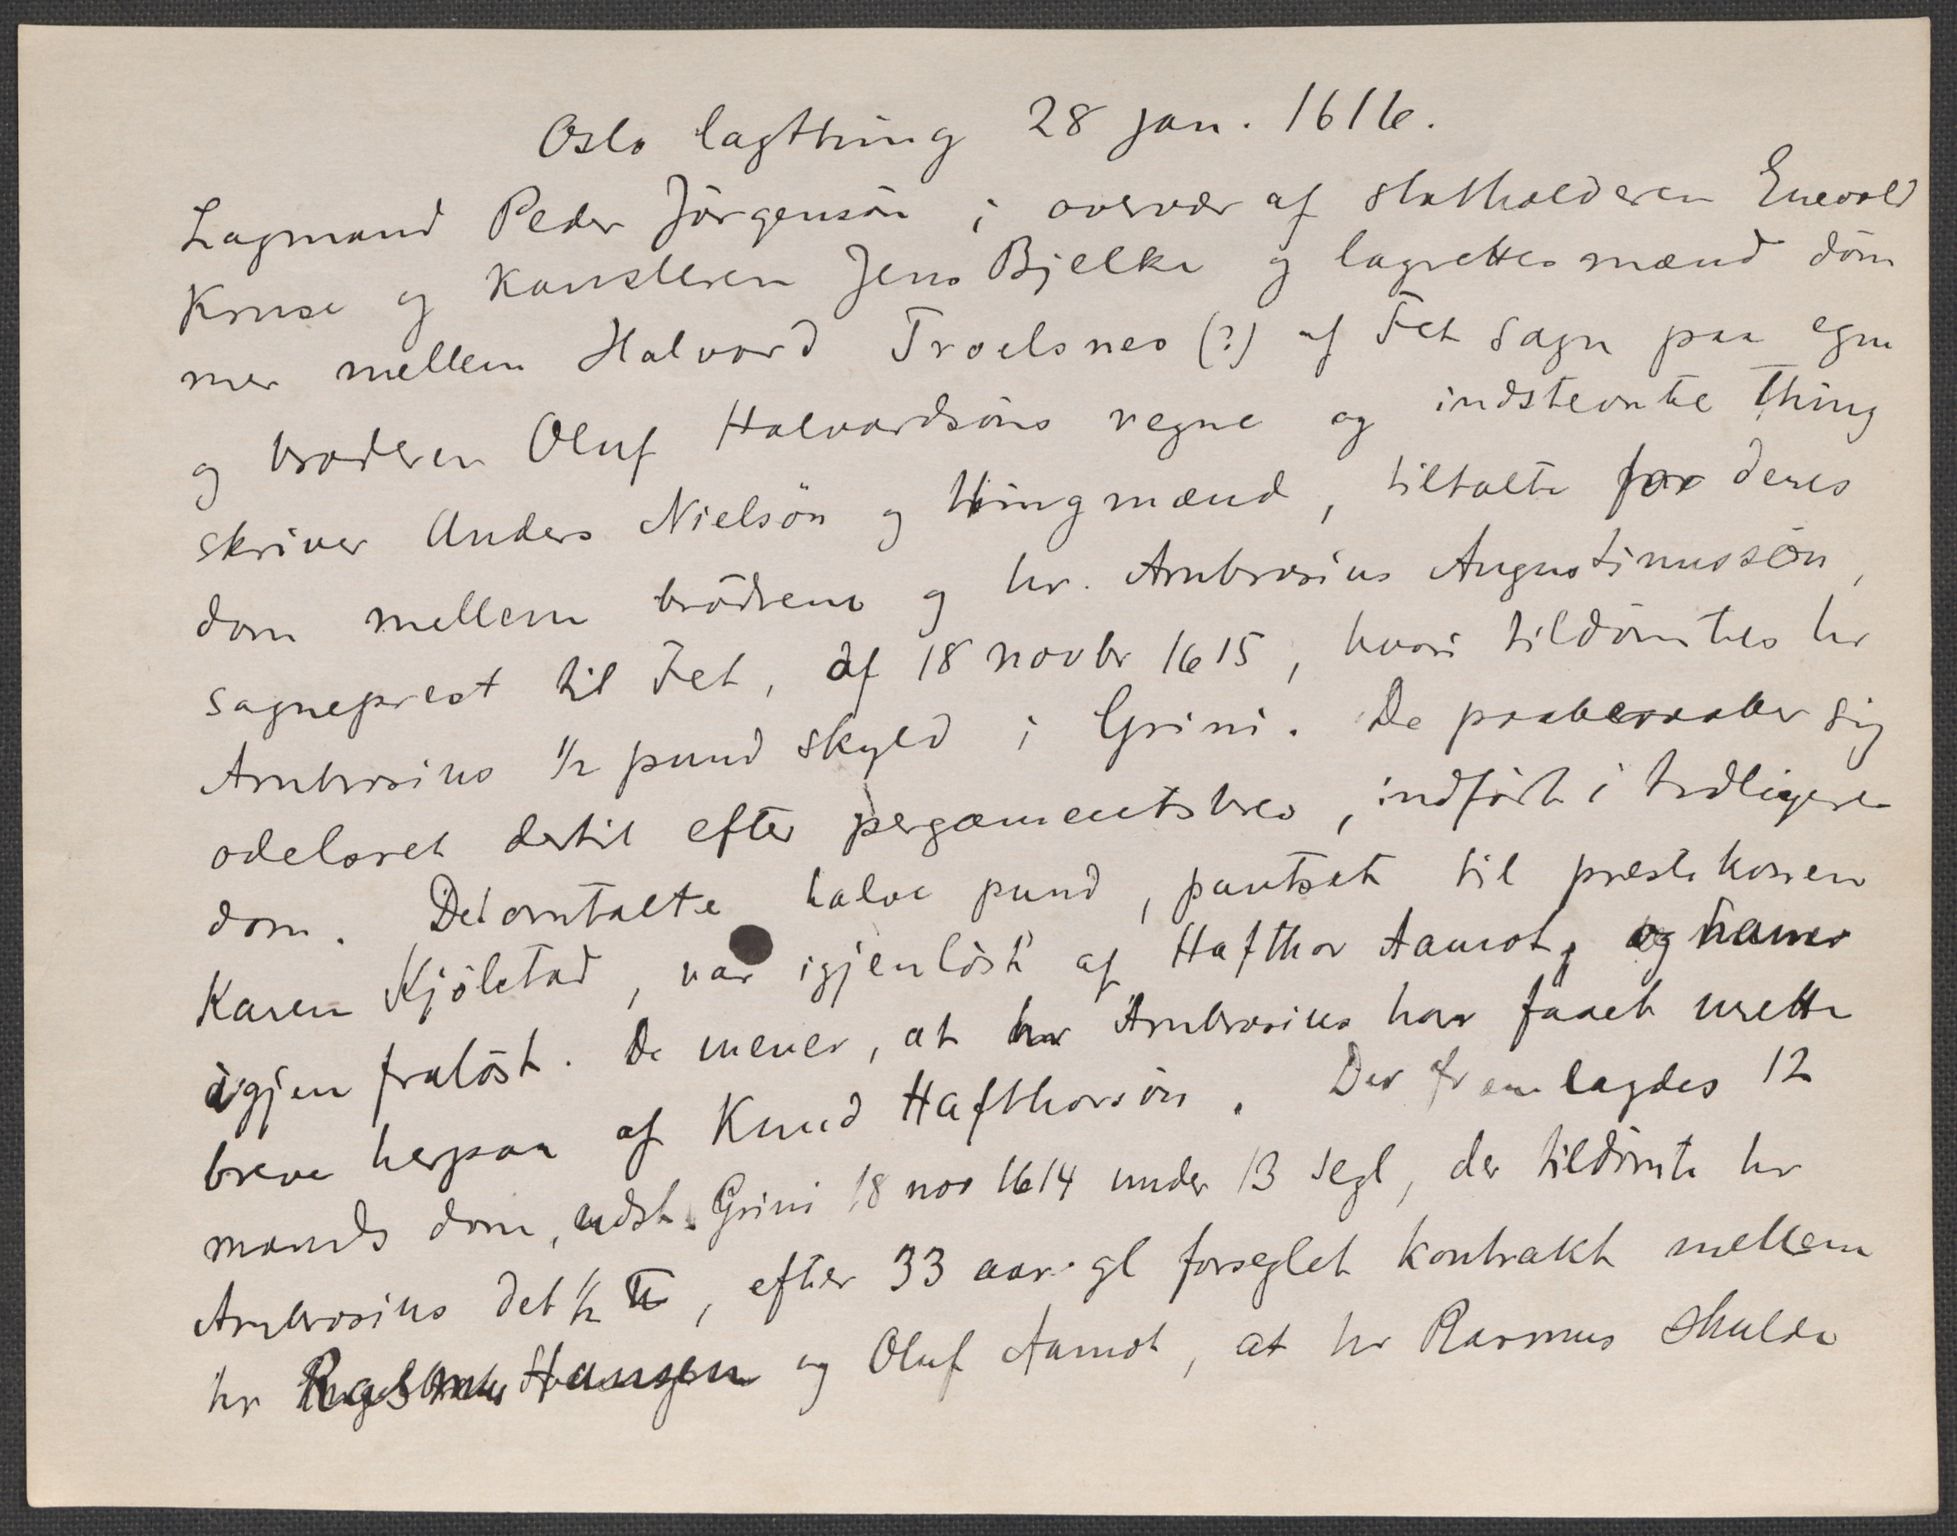 Oslo lagthing 28 jan. 1616.
Lagmand Peder Jörgensön i overvær af statholderen Enevold
Kruse og kansleren Jens Bjelke og lagrettesmænd döm
mer mellem Halvard Troelsnes (?) af Fet sagn paa egne
og broderen Oluf Halvardsöns vegne og indstevnte thing
skriver Anders Nielsön og thingmænd, tiltalte for deres
dom mellem brödrene og hr. Ambrosius Augustinussön,
sagneprest til Fet, af 18 novbr 1615, hvori tildömtes hr
Ambrosius 1/2 pund skyld i Grini. De paaberaaber sig
odelsret dertil efter pergamentsbrev, indfört i tidligere
dom. Det omtalte halve pund, pantsat til prestekonen
Karen Kjölstad, var igjenlöst af Hafthor Aamot, og hames
igjen fralöst. De mener, at hr Ambrosius har faaet urette
breve herpaa af Knud Hafthorsön. Der fremlagdes 12
mands dom, udst. Grini 18 nov 1614 under 13 segl, der tildömte hr
Ambrosius det 1/2 ℔, efter 33 aar gl forseglet kontrakt mellem
hr Rasmus Hansen og Oluf Aamot, at hr Rasmus skulde